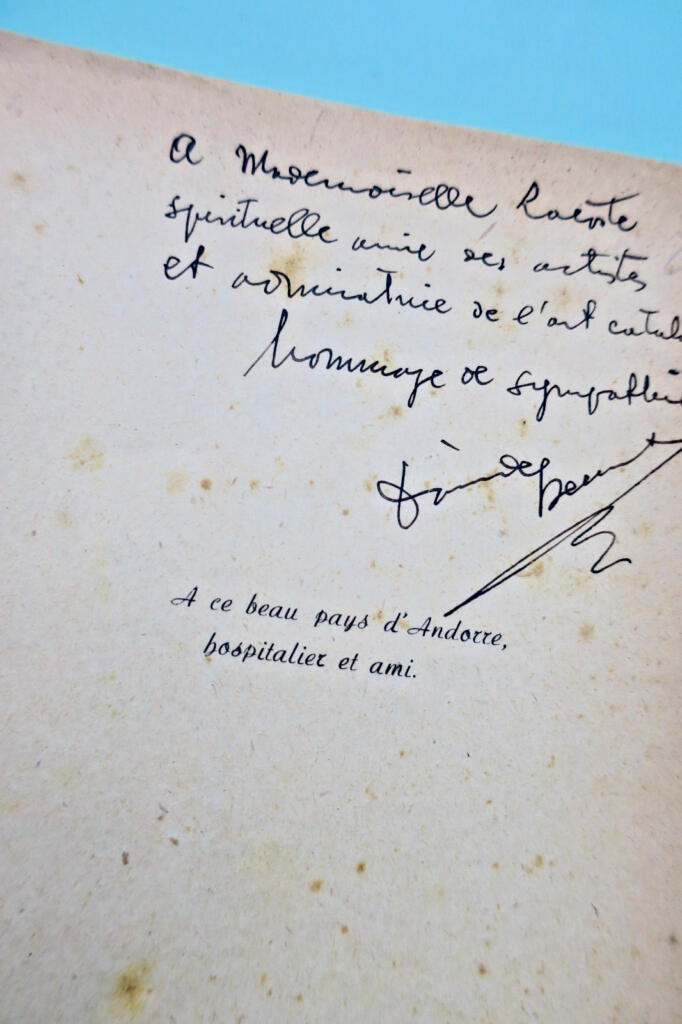 A Mademoiselle
spirituelle amie des artistes
et admiratrice de l'art catal
hommage de sympathie
A ce beau pays d'Andorre,
hospitalier et ami.